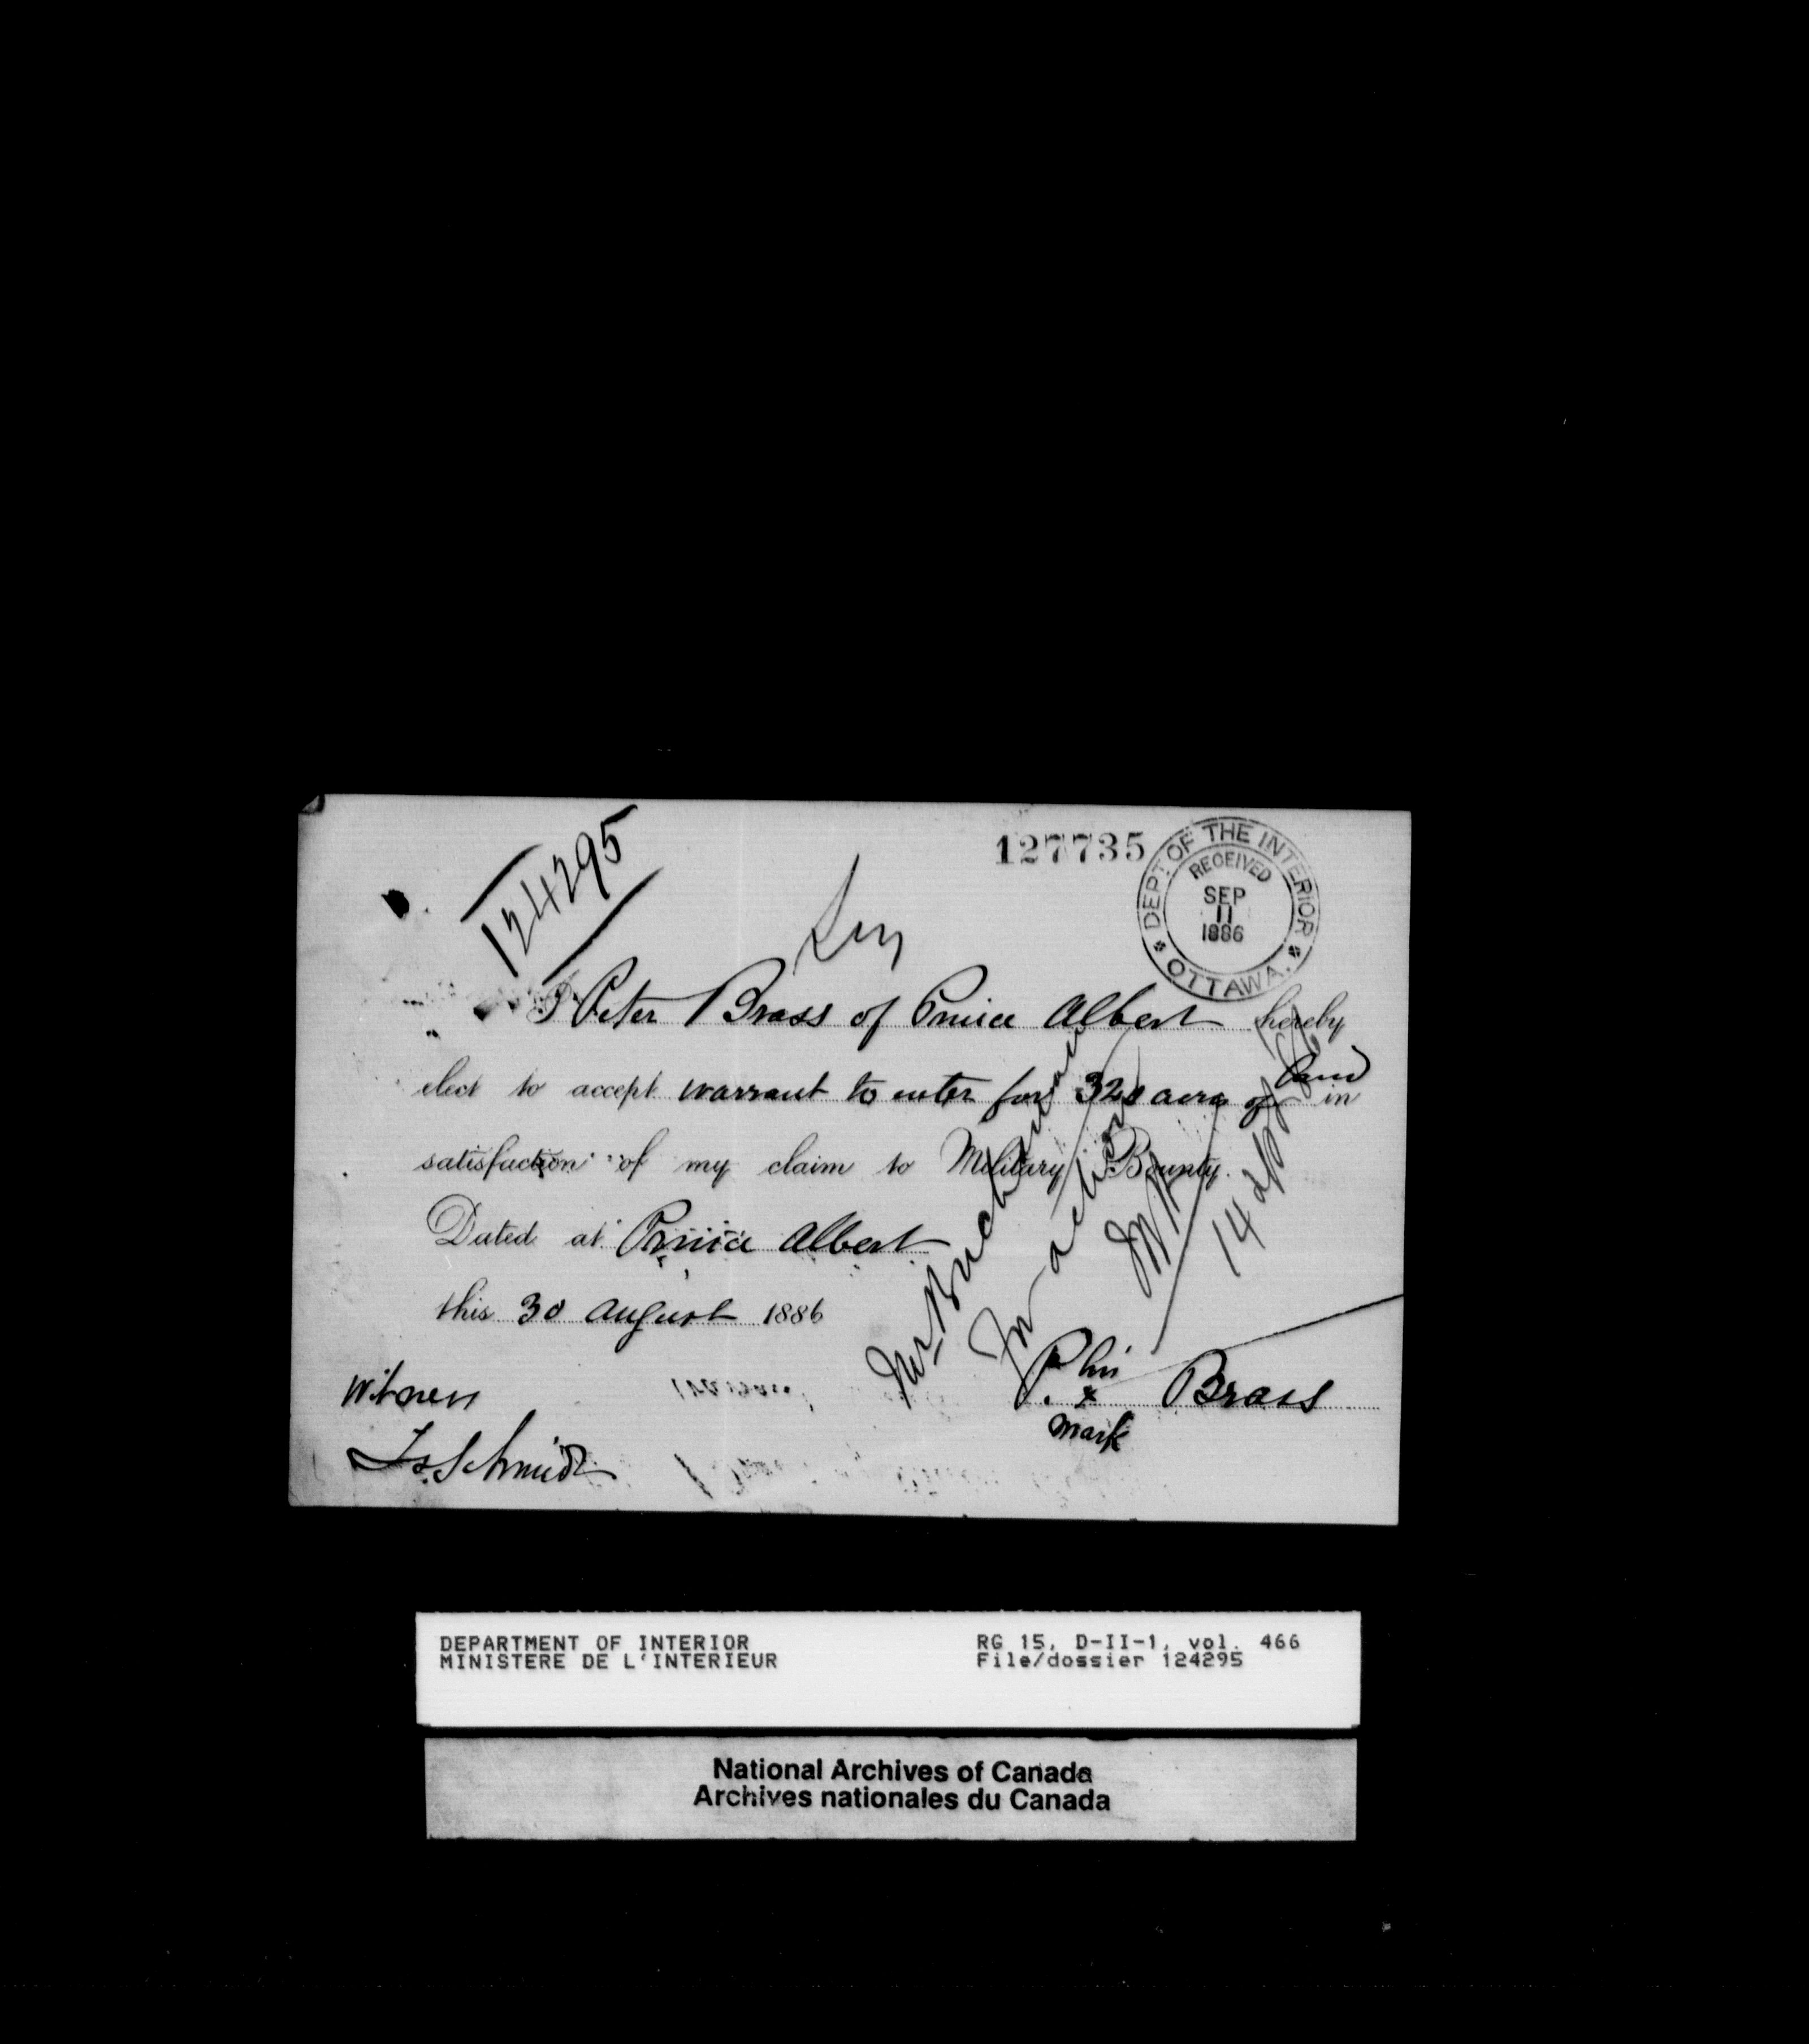 124295
127735
DEPT. OF THE INTERIOR
RECEIVED
SEP
11
1886
OTTAWA.
I Peter Brass of Prince Albert hereby
elect to accept warrant to enter for 320 acres of land in
satisfaction of my claim to Military Bounty.
Dated at Prince Albert
this 30 August 1886
Mr Buchanan
For action
14 Sept
Witness
Ls. Schmidt
P. his x mark Brass
DEPARTMENT OF INTERIOR
MINISTERE DE L'INTERIEUR
RG 15, D-II-1, vol. 466
File/dossier 124295
National Archives of Canada
Archives nationales du Canada